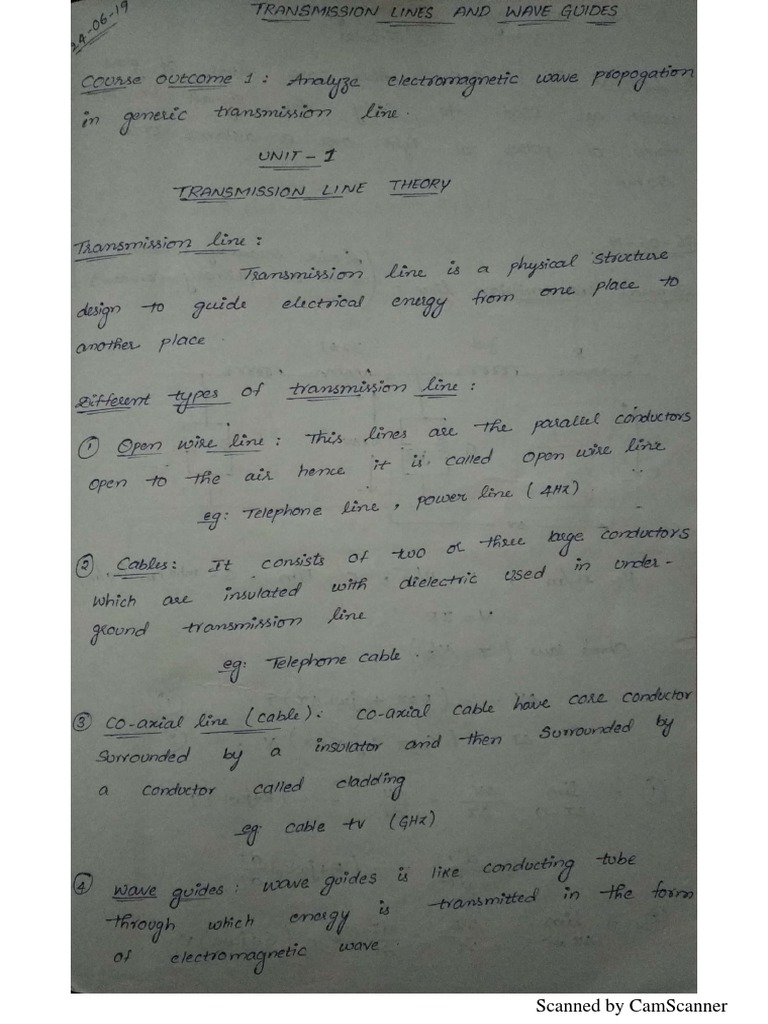 24-06-19
TRANSMISSION LINES AND WAVE GUIDES
Course outcome 1 : Analyze electromagnetic wave propogation
in generic transmission line.
UNIT - 1
TRANSMISSION LINE THEORY
Transmission line :
Transmission line is a physical structure
design to guide electrical energy from one place to
another place.
Different types of transmission line :
① Open wire line : This lines are the parallel conductors
open to the air hence it is called open wire line
eg: Telephone line, power line (4Hz)
② Cables : It consists of two or three large conductors
which are insulated with dielectric used in under-
ground transmission line
eg: Telephone cable.
③ co-axial line (cable) : co-axial cable have core conductor
surrounded by a insulator and then surrounded by
a conductor called cladding
eg: cable tv (GHz)
④ wave guides : wave guides is like conducting tube
through which energy is transmitted in the form
of electromagnetic wave.
Scanned by CamScanner